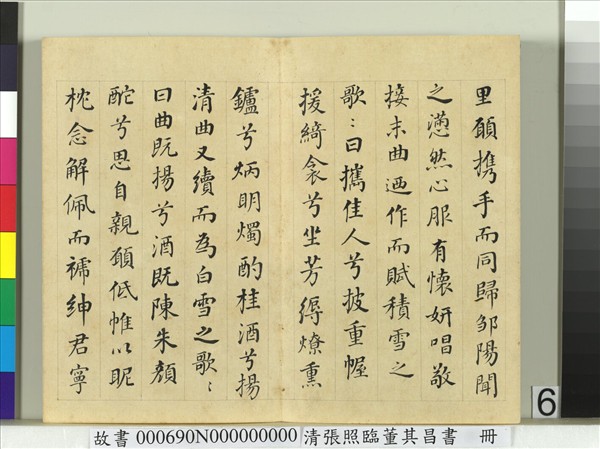 里願攜手而同歸鄒陽聞
之懣然心服有懷妍唱敬
接末曲迺作而賦積雪之
歌〻曰攜佳人兮披重幄
援綺衾兮坐芳縟燎熏
鑪兮炳明燭酌桂酒兮揚
清曲又續而為白雪之歌〻
曰曲既揚兮酒既陳朱顏
酡兮思自親願低帷以昵
枕念解佩而褫紳君寧
6
故書 000690N000000000 清張照臨董其昌書 冊